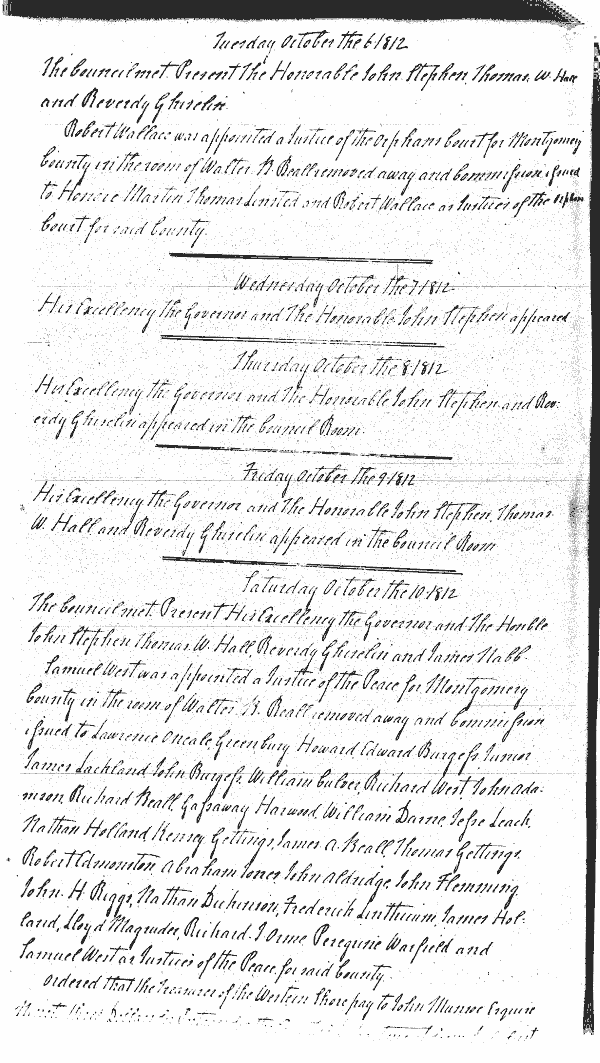 Tuesday October the 6 1812
The Council met. Present The Honorable John Stephen, Thomas W. Hall
and Reverdy Ghiselin.
Robert Wallace was appointed a Justice of the Orphans Court for Montgomery
County in the room of Walter B. Beall removed away and Commission issued
to Honore Martin Thomas Linsted and Robert Wallace as Justices of the Orphans
Court for said County.
Wednesday October the 7 1812
His Excellency the Governor and The Honorable John Stephen appeared
Thursday October the 8 1812
His Excellency the Governor and The Honorable John Stephen and Rev-
erdy Ghiselin appeared in the Council Room.
Friday October the 9 1812
His Excellency the Governor and The Honorable John Stephen, Thomas
W. Hall and Reverdy Ghiselin appeared in the Council Room
Saturday October the 10 1812
The Council met. Present His Excellency the Governor and The Honble
John Stephen Thomas W. Hall, Reverdy Ghiselin and James Nabb.
Samuel West was appointed a Justice of the Peace for Montgomery
County in the room of Walter B. Beall removed away and Commission
issued to Lawrence Oneale, Greenbury Howard Edward Burgess Junior
James Lackland John Burgess, William Culver, Richard West, John Ada-
mson, Richard Beall, Gassaway Harwood, William Darne, Jesse Leach,
Nathan Holland Kensey Gettings, James A. Beall, Thomas Gettings
Robert Edmonston Abraham Jones John Aldridge, John Flemming
John H Riggs, Nathan Dickinson, Frederick Linthicum, James Hol-
land, Lloyd Magruder, Richard I Orme Peregrine Warfield and
Samuel West as Justices of the Peace for said County.
Ordered that the Treasurer of the Western Shore pay to John Munroe Esquire